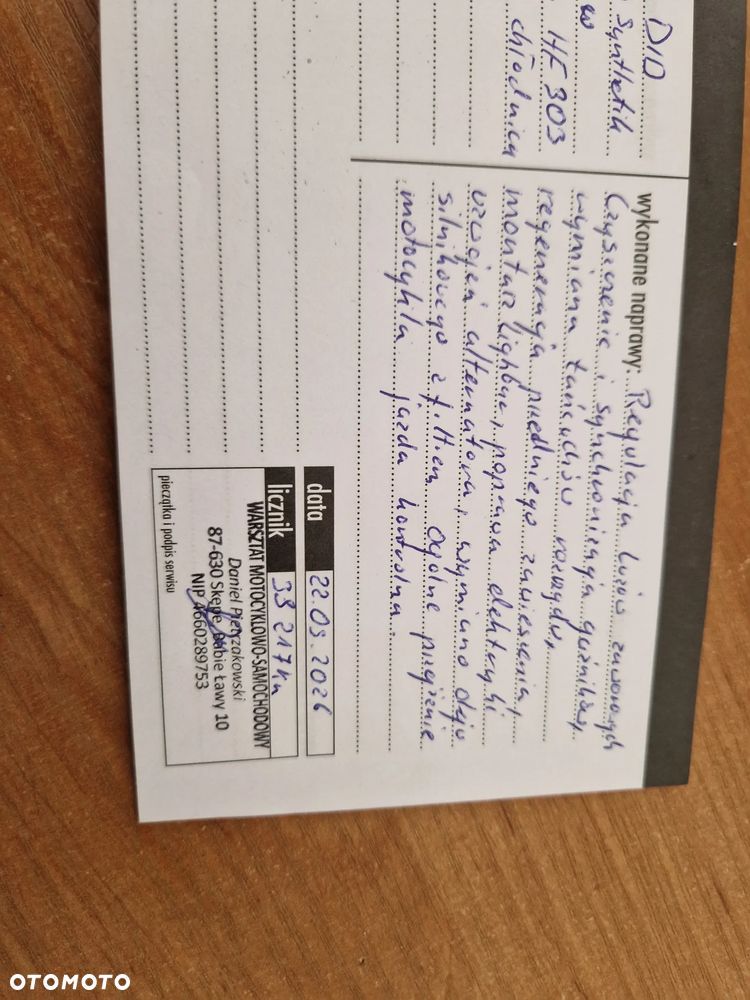 DID
synthetik
w
HF 303
chłodnica
wykonane naprawy: Regulacja luzów zaworowych
Czyszczenie i synchronizacja gaźników,
wymiana łańcuchów rozrządu,
regeneracja przedniego zawieszenia,
montaż lighbar, poprawa elektryki
uzwojeń alternatora, wymiana oleju
silnikowego z filtrem ogólne przejrzenie
motocykla jazda kontrolna.
data 22.03.2026
licznik 39 217km
WARSZTAT MOTOCYKLOWO-SAMOCHODOWY
Daniel Pietrzakowski
87-630 Skępe, Babie Ławy 10
NIP 4660289753
pieczątka i podpis serwisu
OTOMOTO